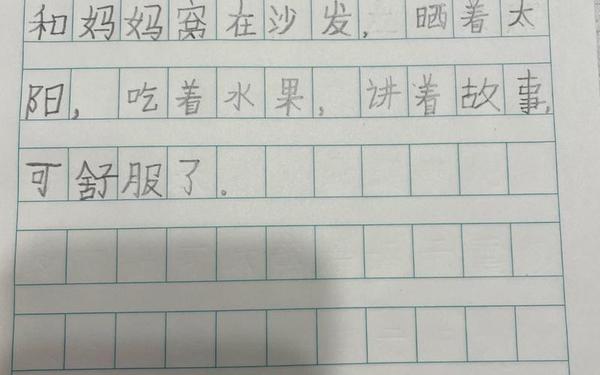 和妈妈窝在沙发，晒着太
阳，吃着水果，讲着故事，
可舒服了.